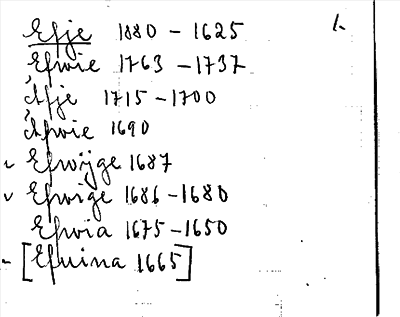 Efje 1880 - 1625 1.
Efwie 1763 - 1737
Afje 1715 - 1700
Afwie 1690
v Efwijge 1687
v Efwige 1686 - 1680
Efwia 1675 - 1650
- [Efuina 1665]